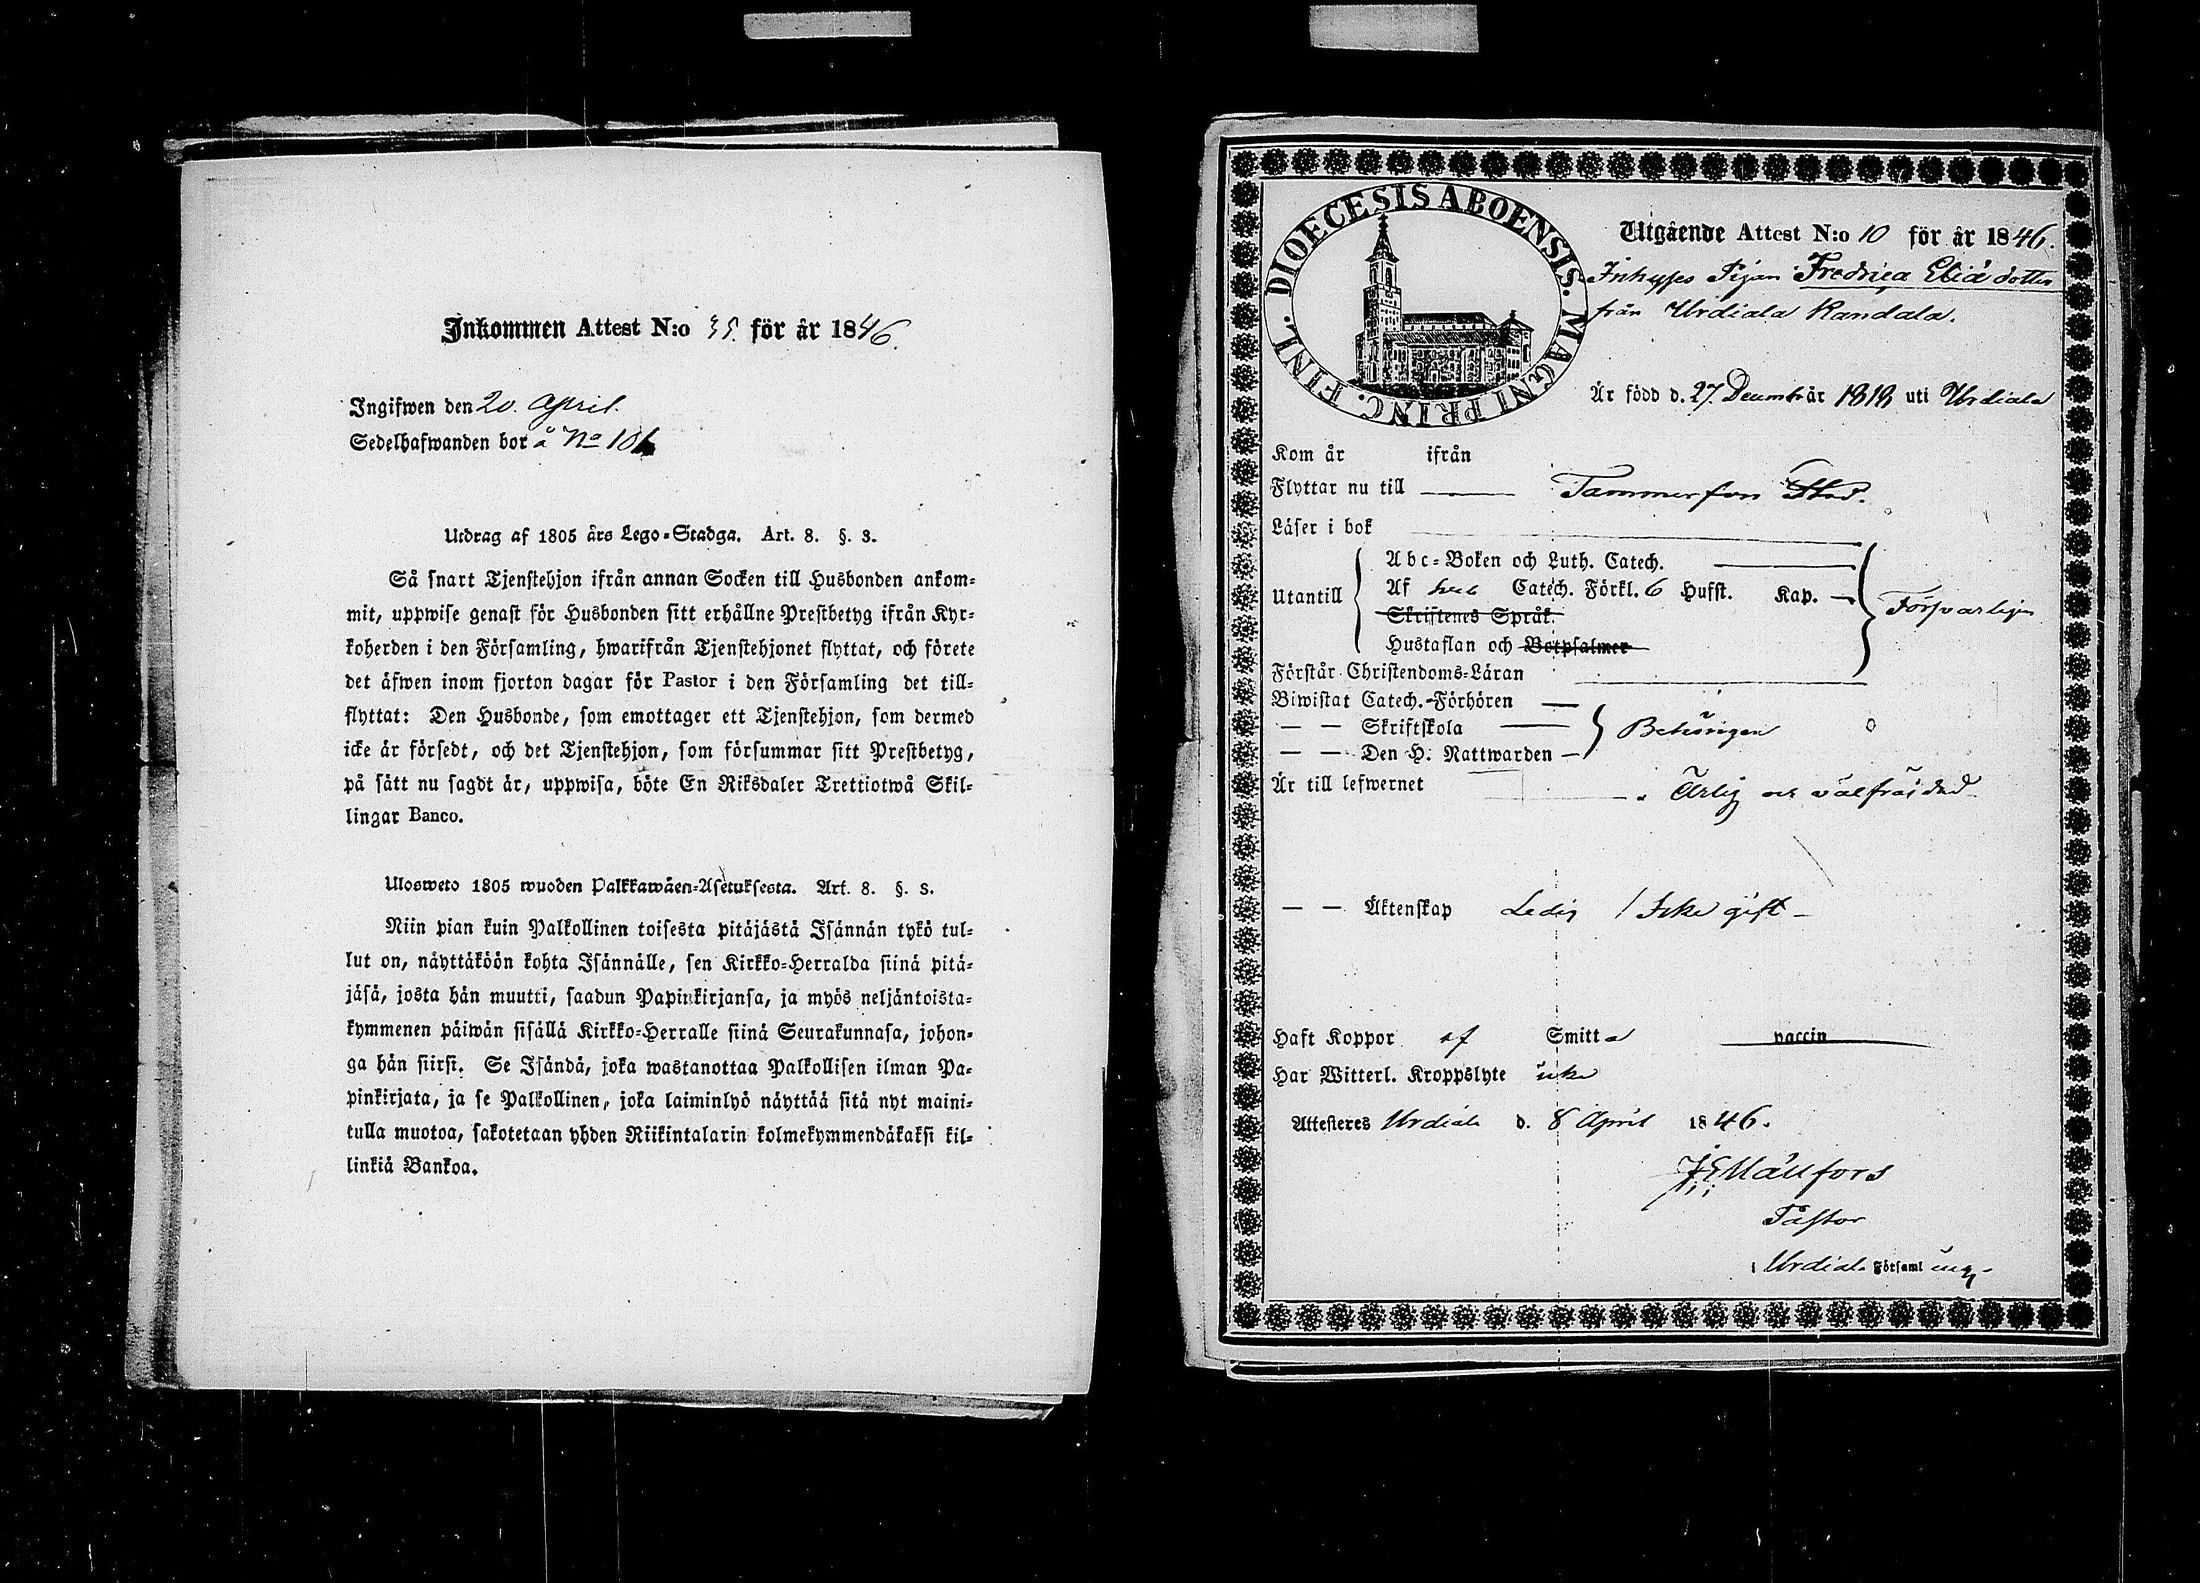 Inkommen Attest N:o 35. för år 1846.
Ingifwen den 20. April.
Sedelhafwanden bor å No 101
Utdrag af 1805 års Lego-Stadga. Art. 8. §. 3.
Så snart Tjenstehjon ifrån annan Socken till Husbonden ankom-
mit, uppwise genast för Husbonden sitt erhållne Prestbetyg ifrån Kyr-
koherden i den Församling, hwarifrån Tjenstehjonet flyttat, och förete
det äfwen inom fjorton dagar för Pastor i den Församling det till-
flyttat: Den Husbonde, som emottager ett Tjenstehjon, som dermed
icke är försedt, och det Tjenstehjon, som försummar sitt Prestbetyg,
på sätt nu sagdt är, uppwisa, böte En Riksdaler Trettiotwå Skil-
lingar Banco.
Ulosweto 1805 wuoden Palkkawäen-Asetuksesta. Art. 8. §. 3.
Niin pian kuin Palkollinen toisesta pitäjästä Isännän tykö tul-
lut on, näyttäköön kohta Isännälle, sen Kirkko-Herralda siinä pitä-
jäsä, josta hän muutti, saadun Papinkirjansa, ja myös neljäntoista-
kymmenen päiwän sisällä Kirkko-Herralle siinä Seurakunnasa, johon-
ga hän siirsi. Se Isändä, joka wastanottaa Palkollisen ilman Pa-
pinkirjata, ja se Palkollinen, joka laiminlyö näyttää sitä nyt maini-
tulla muotoa, sakotetaan yhden Riikintalarin kolmekymmendäkaksi kil-
linkiä Bankoa.
DIOECESIS ABOENSIS. MAGNI PRINC. FINL.
Utgående Attest N:o 10 för år 1846.
Inhyses Pigan Fredrica Eliä dotter
från Urdiala Kandala.
Är född d. 27. Decembr år 1818 uti Urdiala
Kom år ifrån
Flyttar nu till Tammerfors Stad.
Läser i bok
Utantill
Abc-Boken och Luth. Catech.
Af Catech. Förkl. 6 Hufst. Kap.
Skriftenes Språk.
Hustaflan och Botpsalmer
Försvarligen
Förstår Christendoms-Läran
Biwistat Catech.-Förhören
— — Skriftskola
— — Den H. Nattwarden
Behörigen
Är till lefwernet Ärlig och välfräjdad
— — Äktenskap Ledig / Icke gift
Haft Koppor af Smitta vaccin
Har Witterl. Kroppslyte icke
Attesteres Urdiala d. 8 April 1846.
J E Mällfors
Pastor
i Urdiala Församling